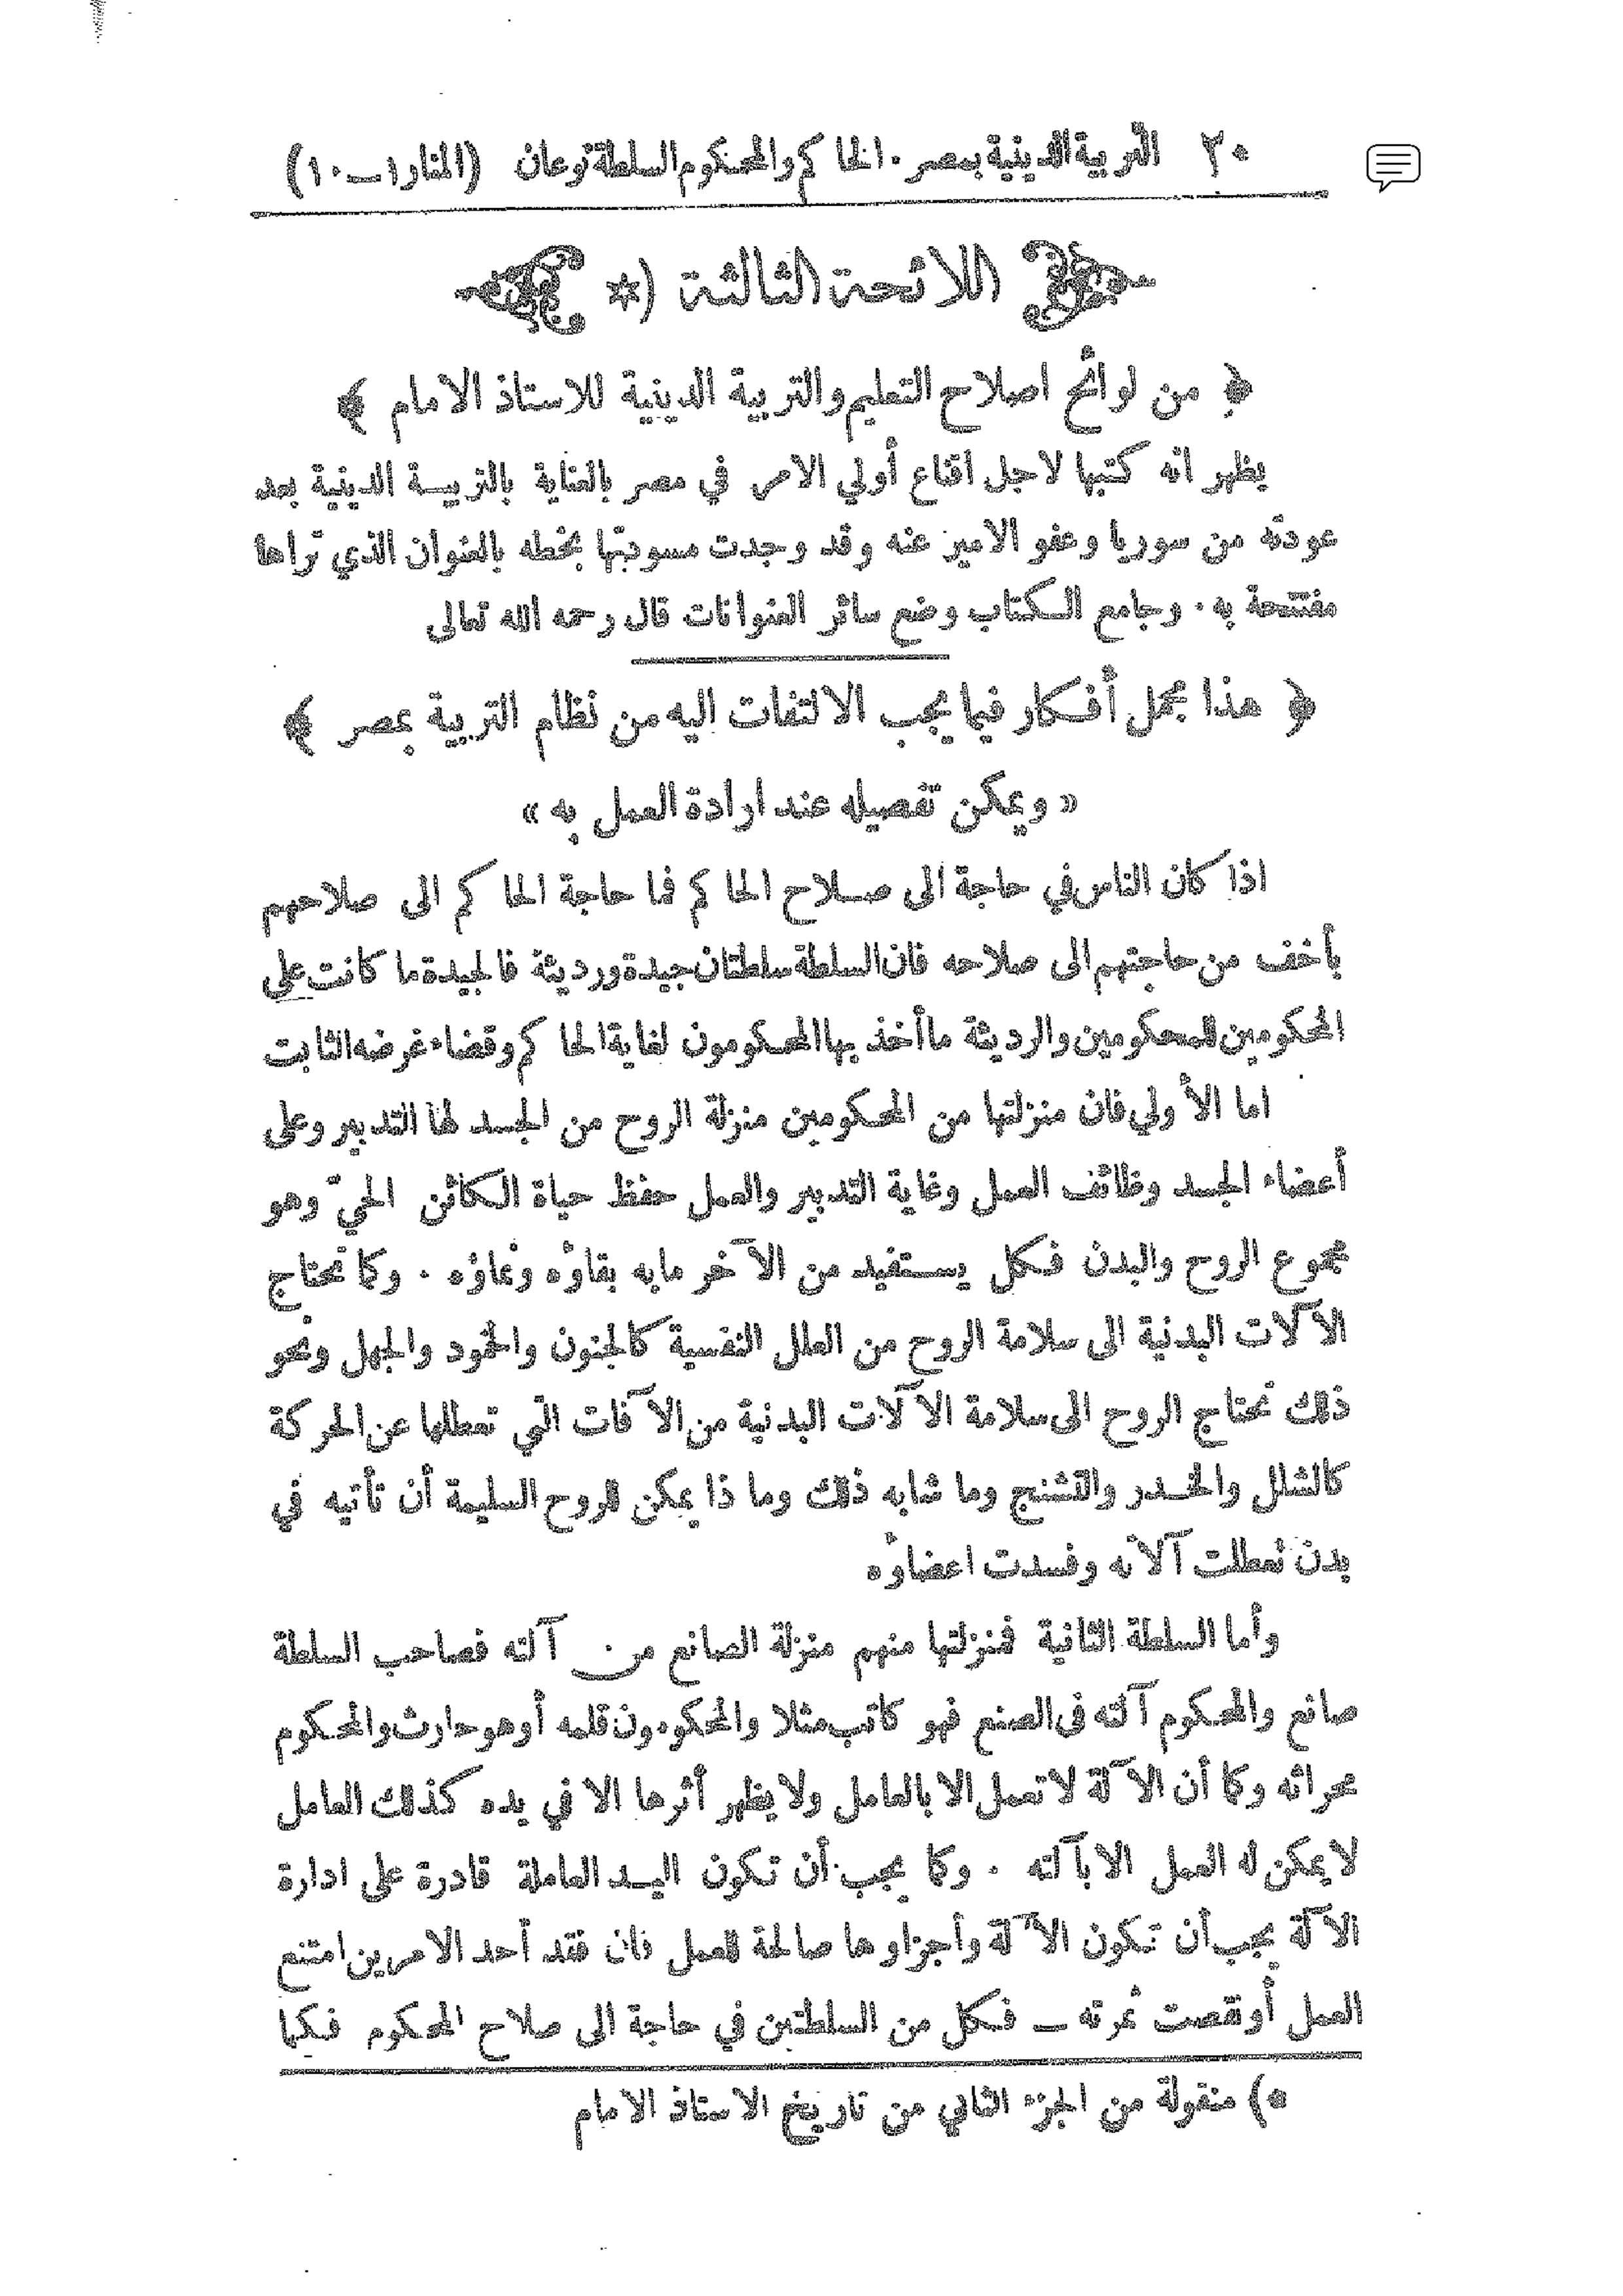 ٢٠ التربية الدينية بمصر . الحاكم والمحكوم السلطة نوعان (المنار ١ــ١٠)
اللائحة الثالثة (*
﴿ من لوائح اصلاح التعليم والتربية الدينية للاستاذ الامام ﴾
يظهر انه كتبها لاجل اقناع أولي الامر في مصر بالعناية بالتربيـة الدينية بعد
عودته من سوريا وعفو الامير عنه وقد وجدت مسودتها بخطه بالعنوان الذي تراها
مفتتحة به . وجامع الـكتاب وضع سائر العنوانات قال رحمه الله تعالى
﴿ هذا مجمل أفـكار فيما يجب الالتفات اليه من نظام التربية بمصر ﴾
« ويمكن تفصيله عند ارادة العمل به »
اذا كان الناس في حاجة الى صـلاح الحاكم فما حاجة الحاكم الى صلاحهم
بأخف من حاجتهم الى صلاحه فان السلطة سلطتان جيدة ورديئة فالجيدة ما كانت على
المحكومين للمحكومين والرديئة ما أخذ بها المحكومون لغاية الحاكم وقضاء غرضه الثابت
اما الأولي فان منزلتها من المحكومين منزلة الروح من الجسد لها التدبير وعلى
أعضاء الجسد وظائف العمل وغاية التدبير والعمل حفظ حياة الـكائن الحيّ وهو
مجموع الروح والبدن فـكل يستفيد من الآخر ما به بقاؤه ونماؤه . وكما تحتاج
الآلات البدنية الى سلامة الروح من العلل النفسية كالجنون والخمود والجهل ونحو
ذلك تحتاج الروح الى سلامة الآلات البدنية من الآفات التي تعطلها عن الحركة
كالشلل والخـدر والتشنج وما شابه ذلك وما ذا يمكن للروح السليمة أن تأتيه في
بدن تعطلت آلاته وفسدت اعضاؤه
وأما السلطة الثانية فمنزلتها منهم منزلة الصانع من آلته فصاحب السلطة
صانع والمحكوم آلته في الصنع فهو كاتب مثلا والمحكومون قلمه أو هو حارث والمحكوم
محراثه وكما أن الآلة لا تعمل الا بالعامل ولا يظهر أثرها الا في يده كذلك العامل
لا يمكن له العمل الا بآلته . وكما يجب أن تكون اليـد العاملة قادرة على ادارة
الآلة يجب أن تكون الآلة وأجزاوها صالحة للعمل فان فقد أحد الامرين امتنع
العمل أو نقصت ثمرته ــ فـكل من السلطتين في حاجة الى صلاح المحكوم فـكما
*) منقولة من الجزء الثاني من تاريخ الاستاذ الامام